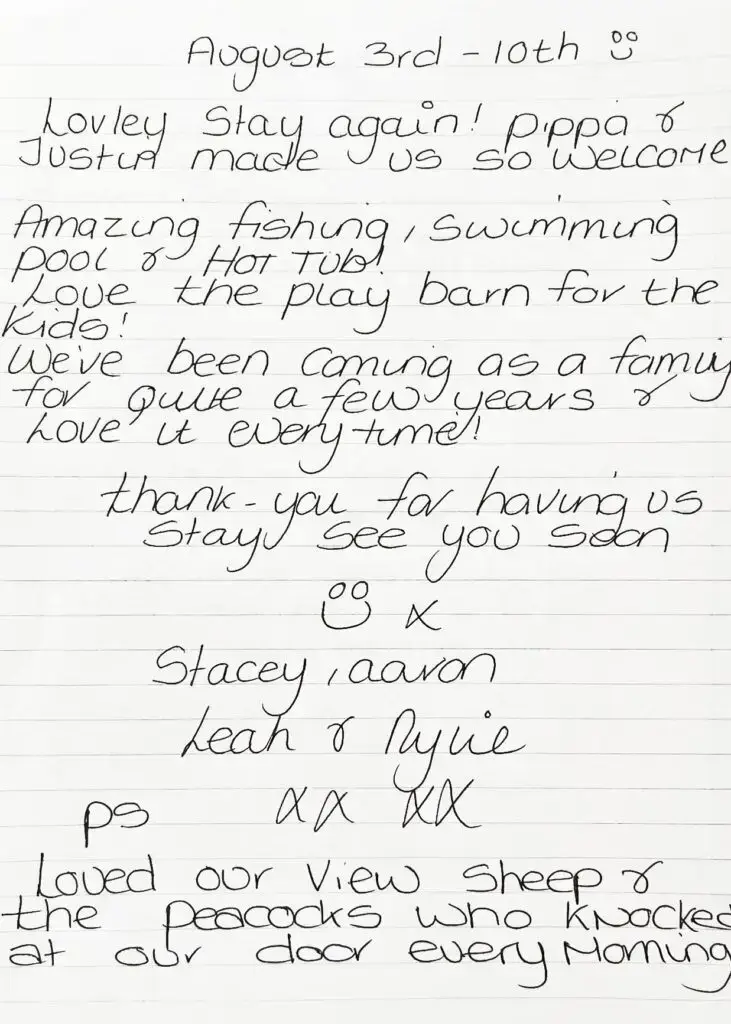 August 3rd - 10th
Lovley Stay again! Pippa &
Justin made us so welcome
Amazing fishing, swimming
pool & Hot Tub!
Love the play barn for the
kids!
We've been coming as a family
for quite a few years &
Love it every time!
thank-you for having us
Stay, see you soon
x
Stacey, aaron
Leah & Rylie
xx xx
ps
Loved our view sheep &
the peacocks who knocked
at our door every Morning